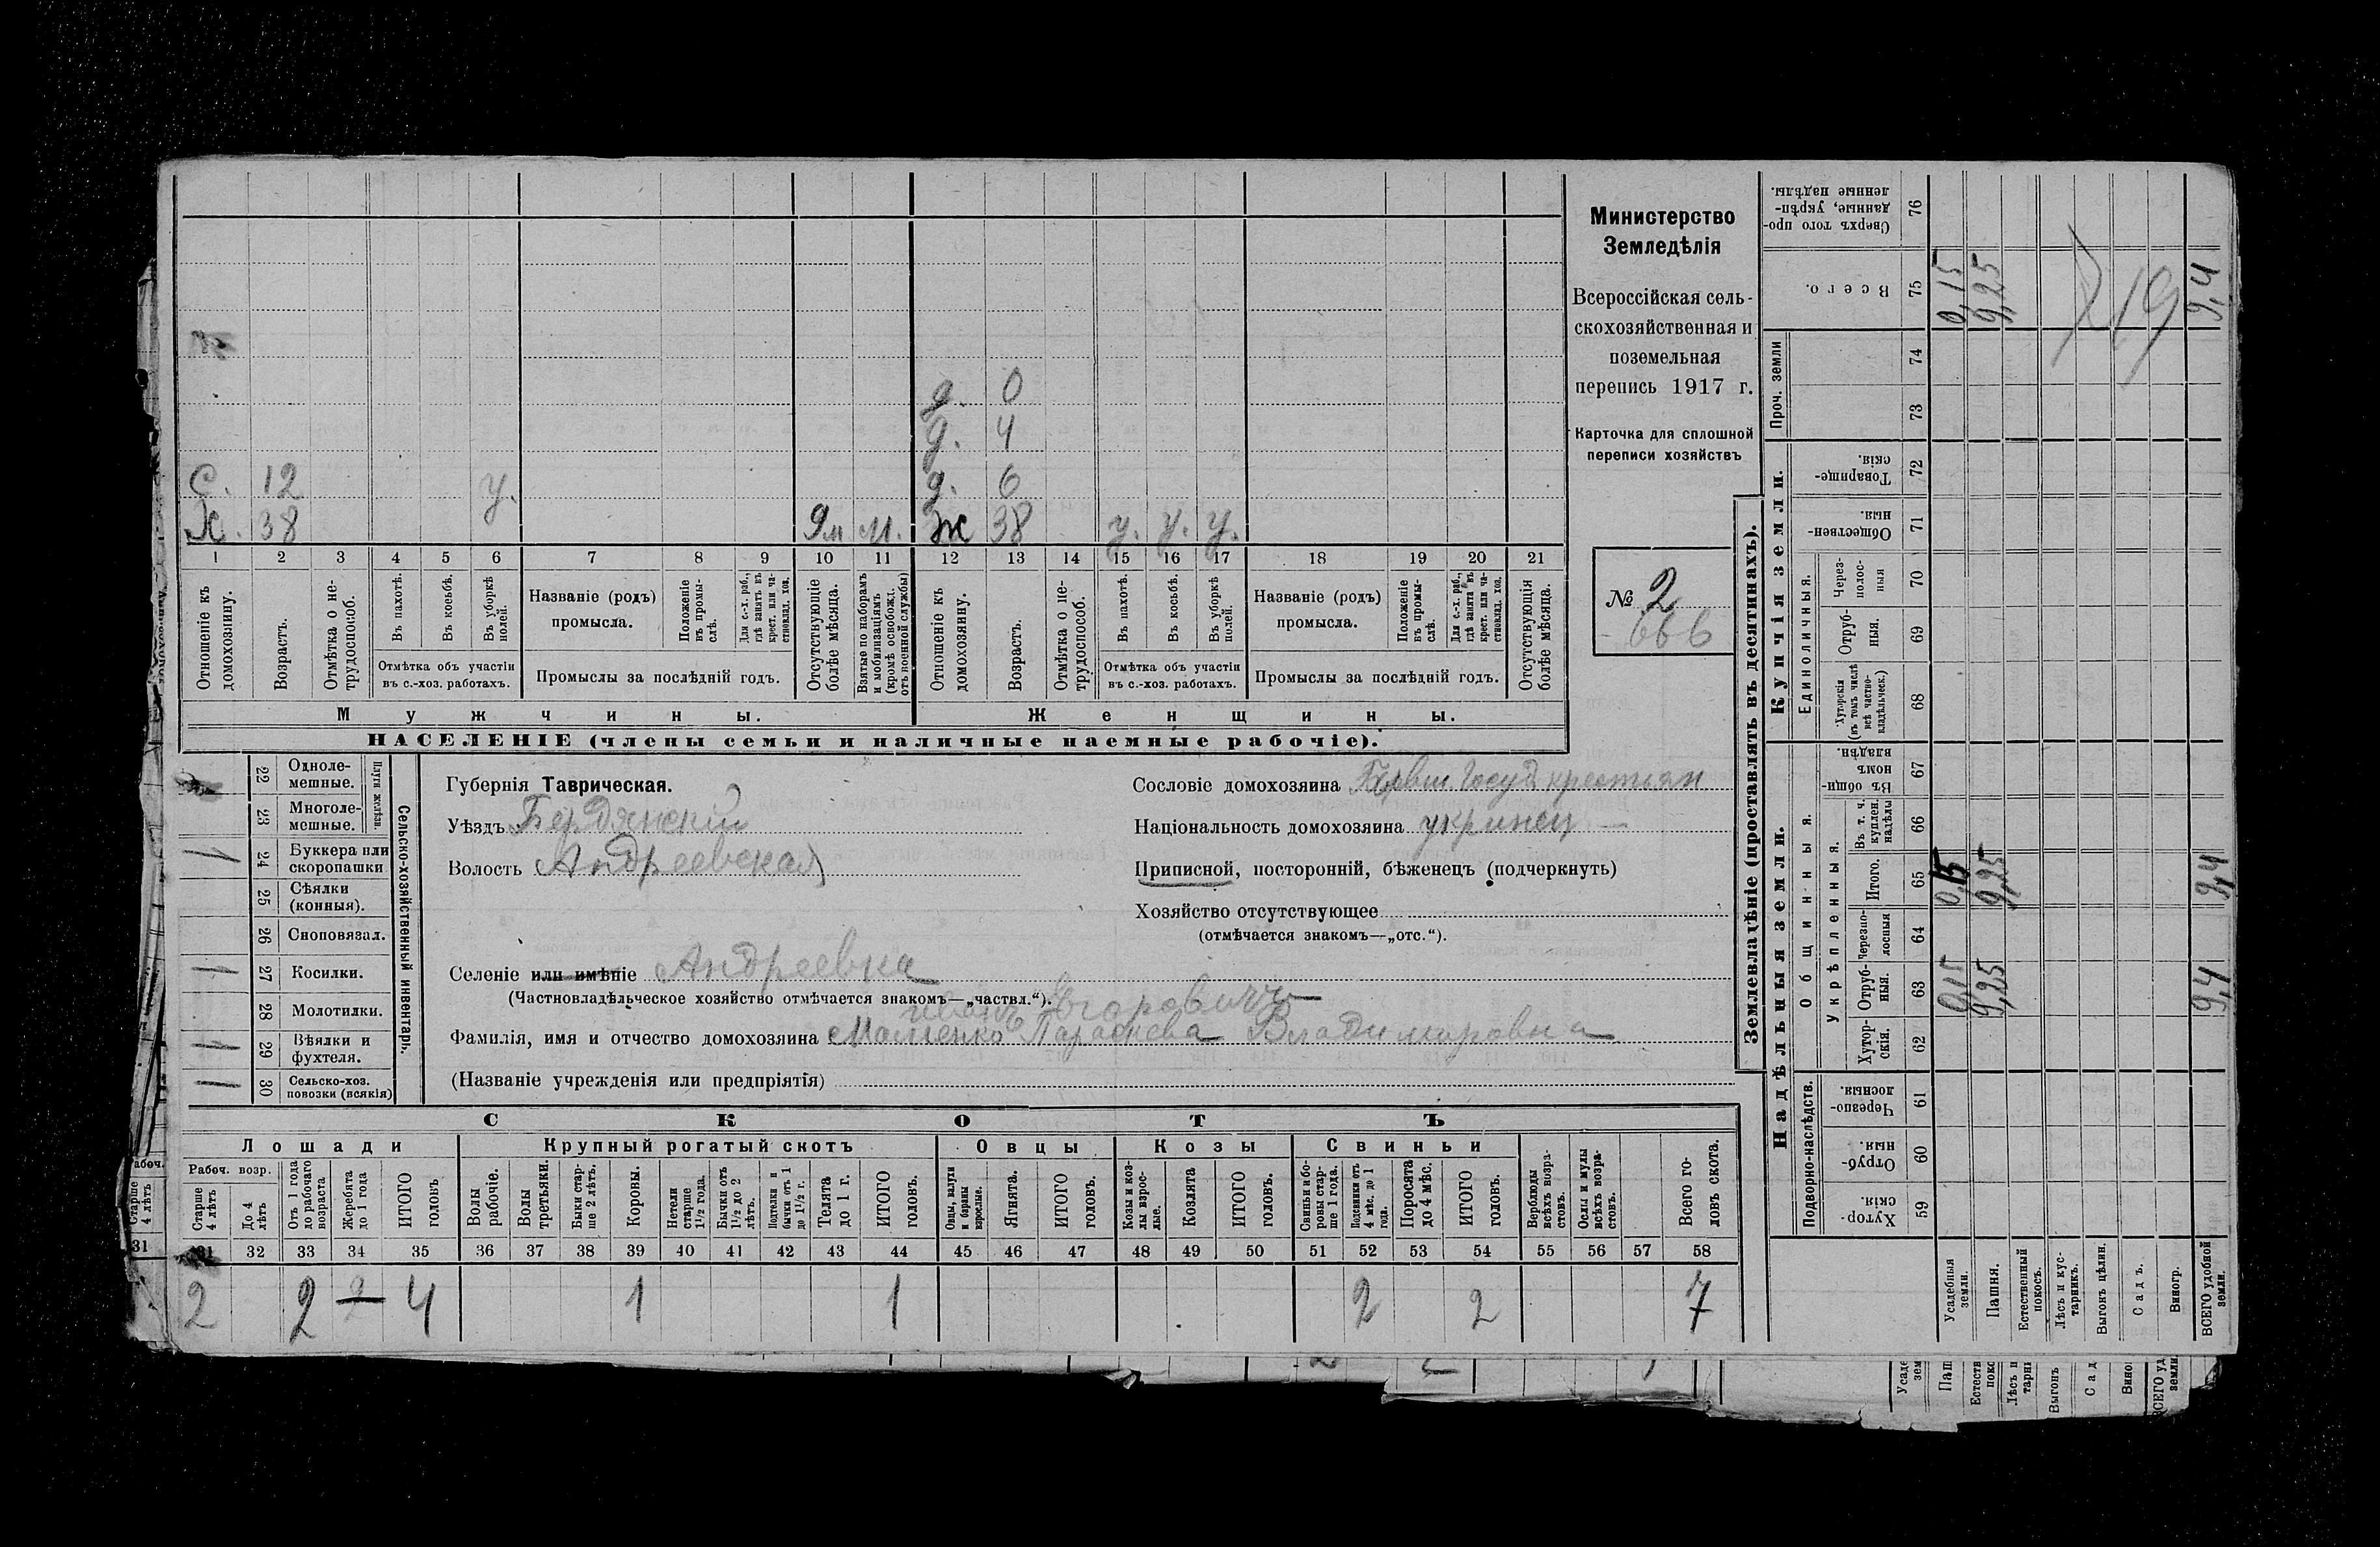 д. 0
д. 4
с. 12 у. д. 6
Х. 38 9м М. Ж 38 у. у. у.
1 2 3 4 5 6 7 8 9 10 11 12 13 14 15 16 17 18 19 20 21
Отношеніе къ домохозяину.
Возрастъ.
Отмѣтка о не-трудоспособ.
Въ пахотѣ.
Въ косьбѣ.
Въ уборкѣ полей.
Отмѣтка объ участіи
въ с.-хоз. работахъ.
Названіе (родъ)
промысла.
Положеніе въ промы-слѣ.
Для с.-х. раб., гдѣ занятъ въ крест. или ча-стновлад. хоз.
Промыслы за послѣдній годъ.
Отсутствующіе болѣе мѣсяца.
Взятые по наборамъ и мобилизаціямъ (кромѣ освобожд. отъ военной службы)
Отношеніе къ домохозяину.
Возрастъ.
Отмѣтка о не-трудоспособ.
Въ пахотѣ.
Въ косьбѣ.
Въ уборкѣ полей.
Отмѣтка объ участіи
въ с.-хоз. работахъ.
Названіе (родъ)
промысла.
Положеніе въ промы-слѣ.
Для с.-х. раб., гдѣ занята въ крест. или ча-стновлад. хоз.
Промыслы за послѣдній годъ.
Отсутствующія болѣе мѣсяца.
Мужчины. Женщины.
НАСЕЛЕНІЕ (члены семьи и наличные наемные рабочіе).
Министерство
Земледѣлія
Всероссійская сель-
скохозяйственная и
поземельная
перепись 1917 г.
Карточка для сплошной
переписи хозяйствъ
№ 2
666
22 Одноле-мешные.
23 Многоле-мешные.
Плуги желѣзн.
1 24 Буккера или скоропашки
25 Сѣялки (конныя).
26 Сноповязал.
1 27 Косилки.
28 Молотилки.
1 29 Вѣялки и фухтеля.
1 30 Сельско-хоз. повозки (всякія)
Сельско-хозяйственный инвентарь.
Губернія Таврическая.
Уѣздъ Бердянскій
Волость Андреевская
Селеніе или имѣніе Андреевка
(Частновладѣльческое хозяйство отмѣчается знакомъ—„частвл.“).
Иванъ Егоровичъ
Фамилія, имя и отчество домохозяина Парасчева Владимировна
(Названіе учрежденія или предпріятія)
Сословіе домохозяина Бывш. Госуд крестьян
Національность домохозяина укринец
Приписной, посторонній, бѣженецъ (подчеркнуть)
Хозяйство отсутствующее
(отмѣчается знакомъ—„отс.“).
СКОТЪ
Лошади Крупный рогатый скотъ Овцы Козы Свиньи
Рабоч. возр.
Старше 4 лѣтъ
До 4 лѣтъ
Отъ 1 года до рабочаго возраста
Жеребята до 1 года
ИТОГО головъ
Волы рабочіе.
Волы третьяки.
Быки стар-ше 2 лѣтъ.
Коровы.
Нетели старше 1½ года.
Бычки отъ 1½ до 2 лѣтъ.
Подтелки и бычки отъ 1 до 1½ г.
Телята до 1 г.
ИТОГО головъ.
Овцы, валухи и бараны взрослые.
Ягнята.
ИТОГО головъ.
Козы и коз-лы взрос-лые.
Козлята
ИТОГО головъ.
Свиньи и бо-ровы стар-ше 1 года.
Подсвинки отъ 4 мѣс. до 1 года.
Поросята до 4 мѣс.
ИТОГО головъ.
Верблюды всѣхъ возра-стовъ.
Ослы и мулы всѣхъ возра-стовъ.
Всего го-ловъ скота.
31 31 32 33 34 35 36 37 38 39 40 41 42 43 44 45 46 47 48 49 50 51 52 53 54 55 56 57 58
2 2 2 4 1 1 2 2 7
Землевладѣніе (проставлять въ десятинахъ).
Надѣльныя земли. Купчія земли.
Подворно-наслѣдств.
Общинныя.
Укрѣпленныя.
Единоличныя.
Проч. земли
Хутор-скія. 59
Отруб-ныя. 60
Черезпо-лосныя 61
Хутор-скія. 62
Отруб-ныя. 63
Черезпо-лосныя 64
Итого. 65
Въ т. ч. куплен. надѣлы 66
Въ общи-номъ владѣн. 67
Хуторскія (въ томъ числѣ всѣ частно-владѣльческ.) 68
Отруб-ныя. 69
Через-полос-ныя 70
Обществен-ныя. 71
Товарище-скія. 72
73
74
Всего. 75
Сверхъ того про-данные, укрѣп-ленные надѣлы. 76
Усадебныя земли. 0,15 0,15 0,15
Пашня. 9,25 9,25 9,25
Естественный покосъ.
Лѣсъ и кус-тарникъ.
Выгонъ цѣлин.
Садъ.
Виногр.
ВСЕГО удобной земли. 9,4 9,4 9,4
19